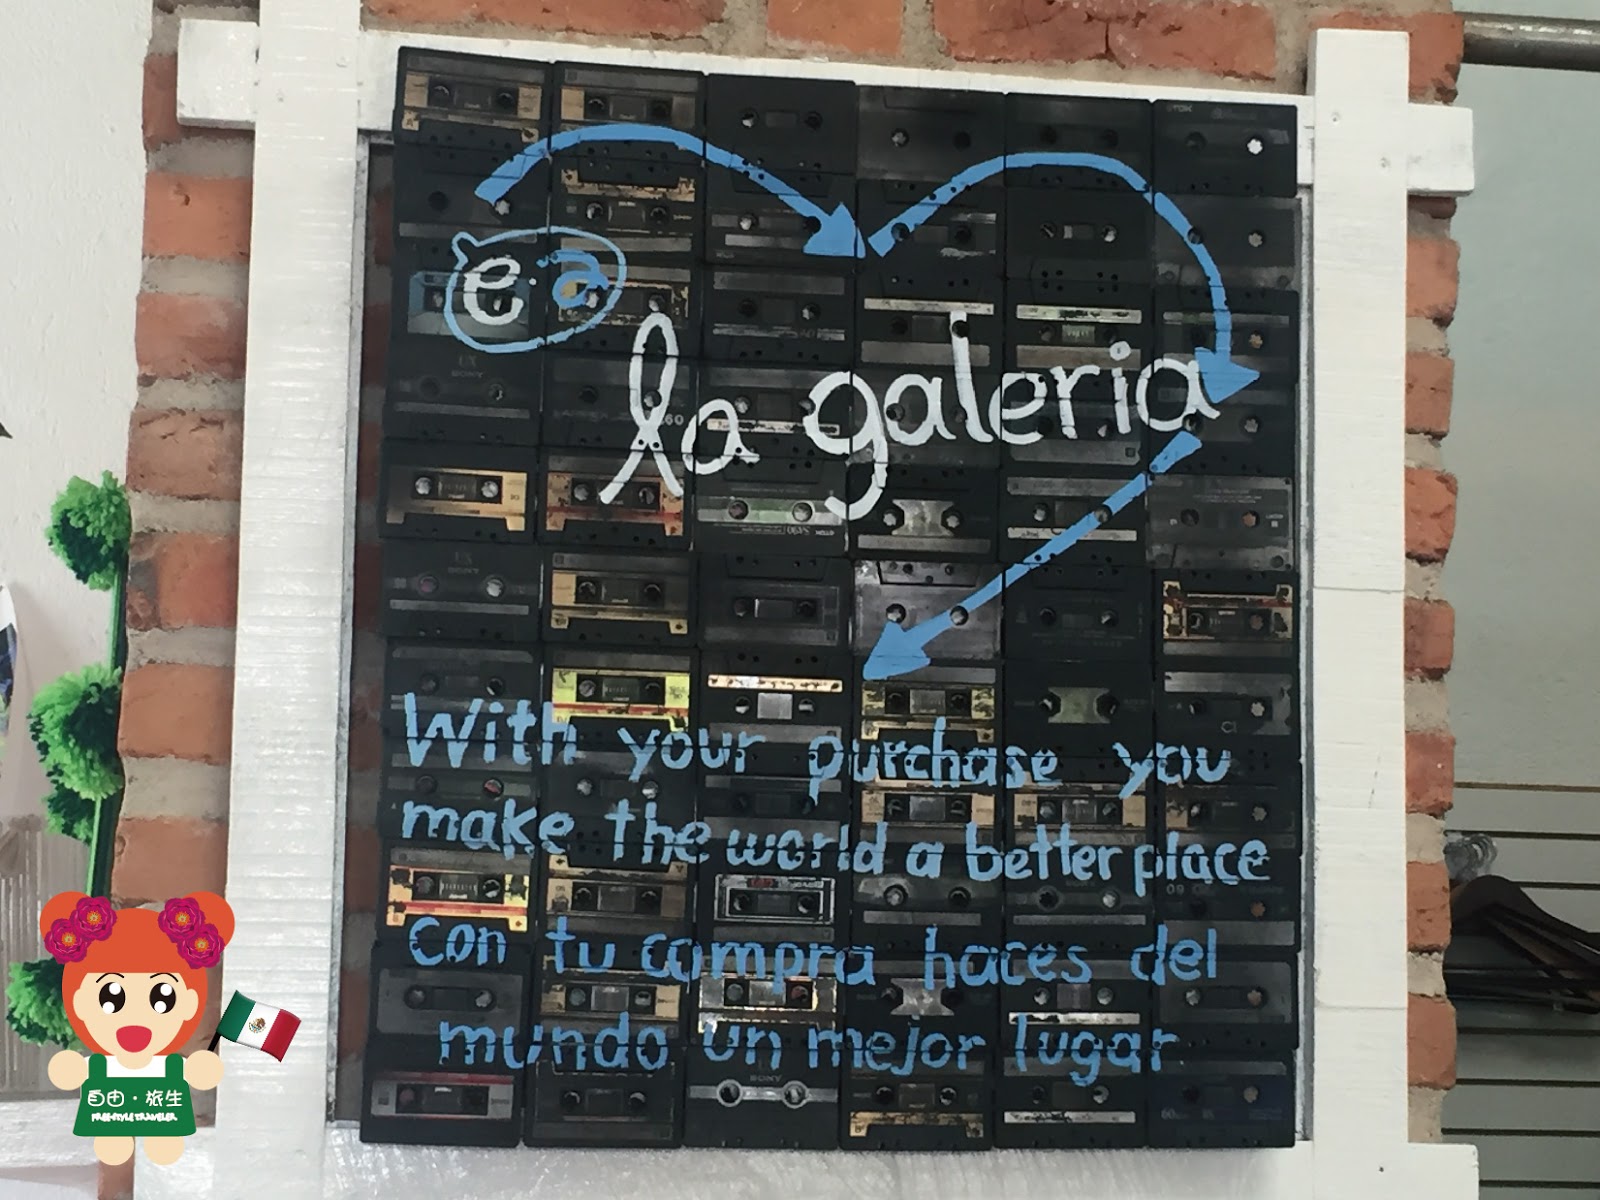 e.a
la galeria
With your purchase you
make the world a better place
Con tu compra haces del
mundo un mejor lugar
自由・旅生
FREESTYLE TRAVELER
TDK
UX
SONY
UX
SONY
60
SONY